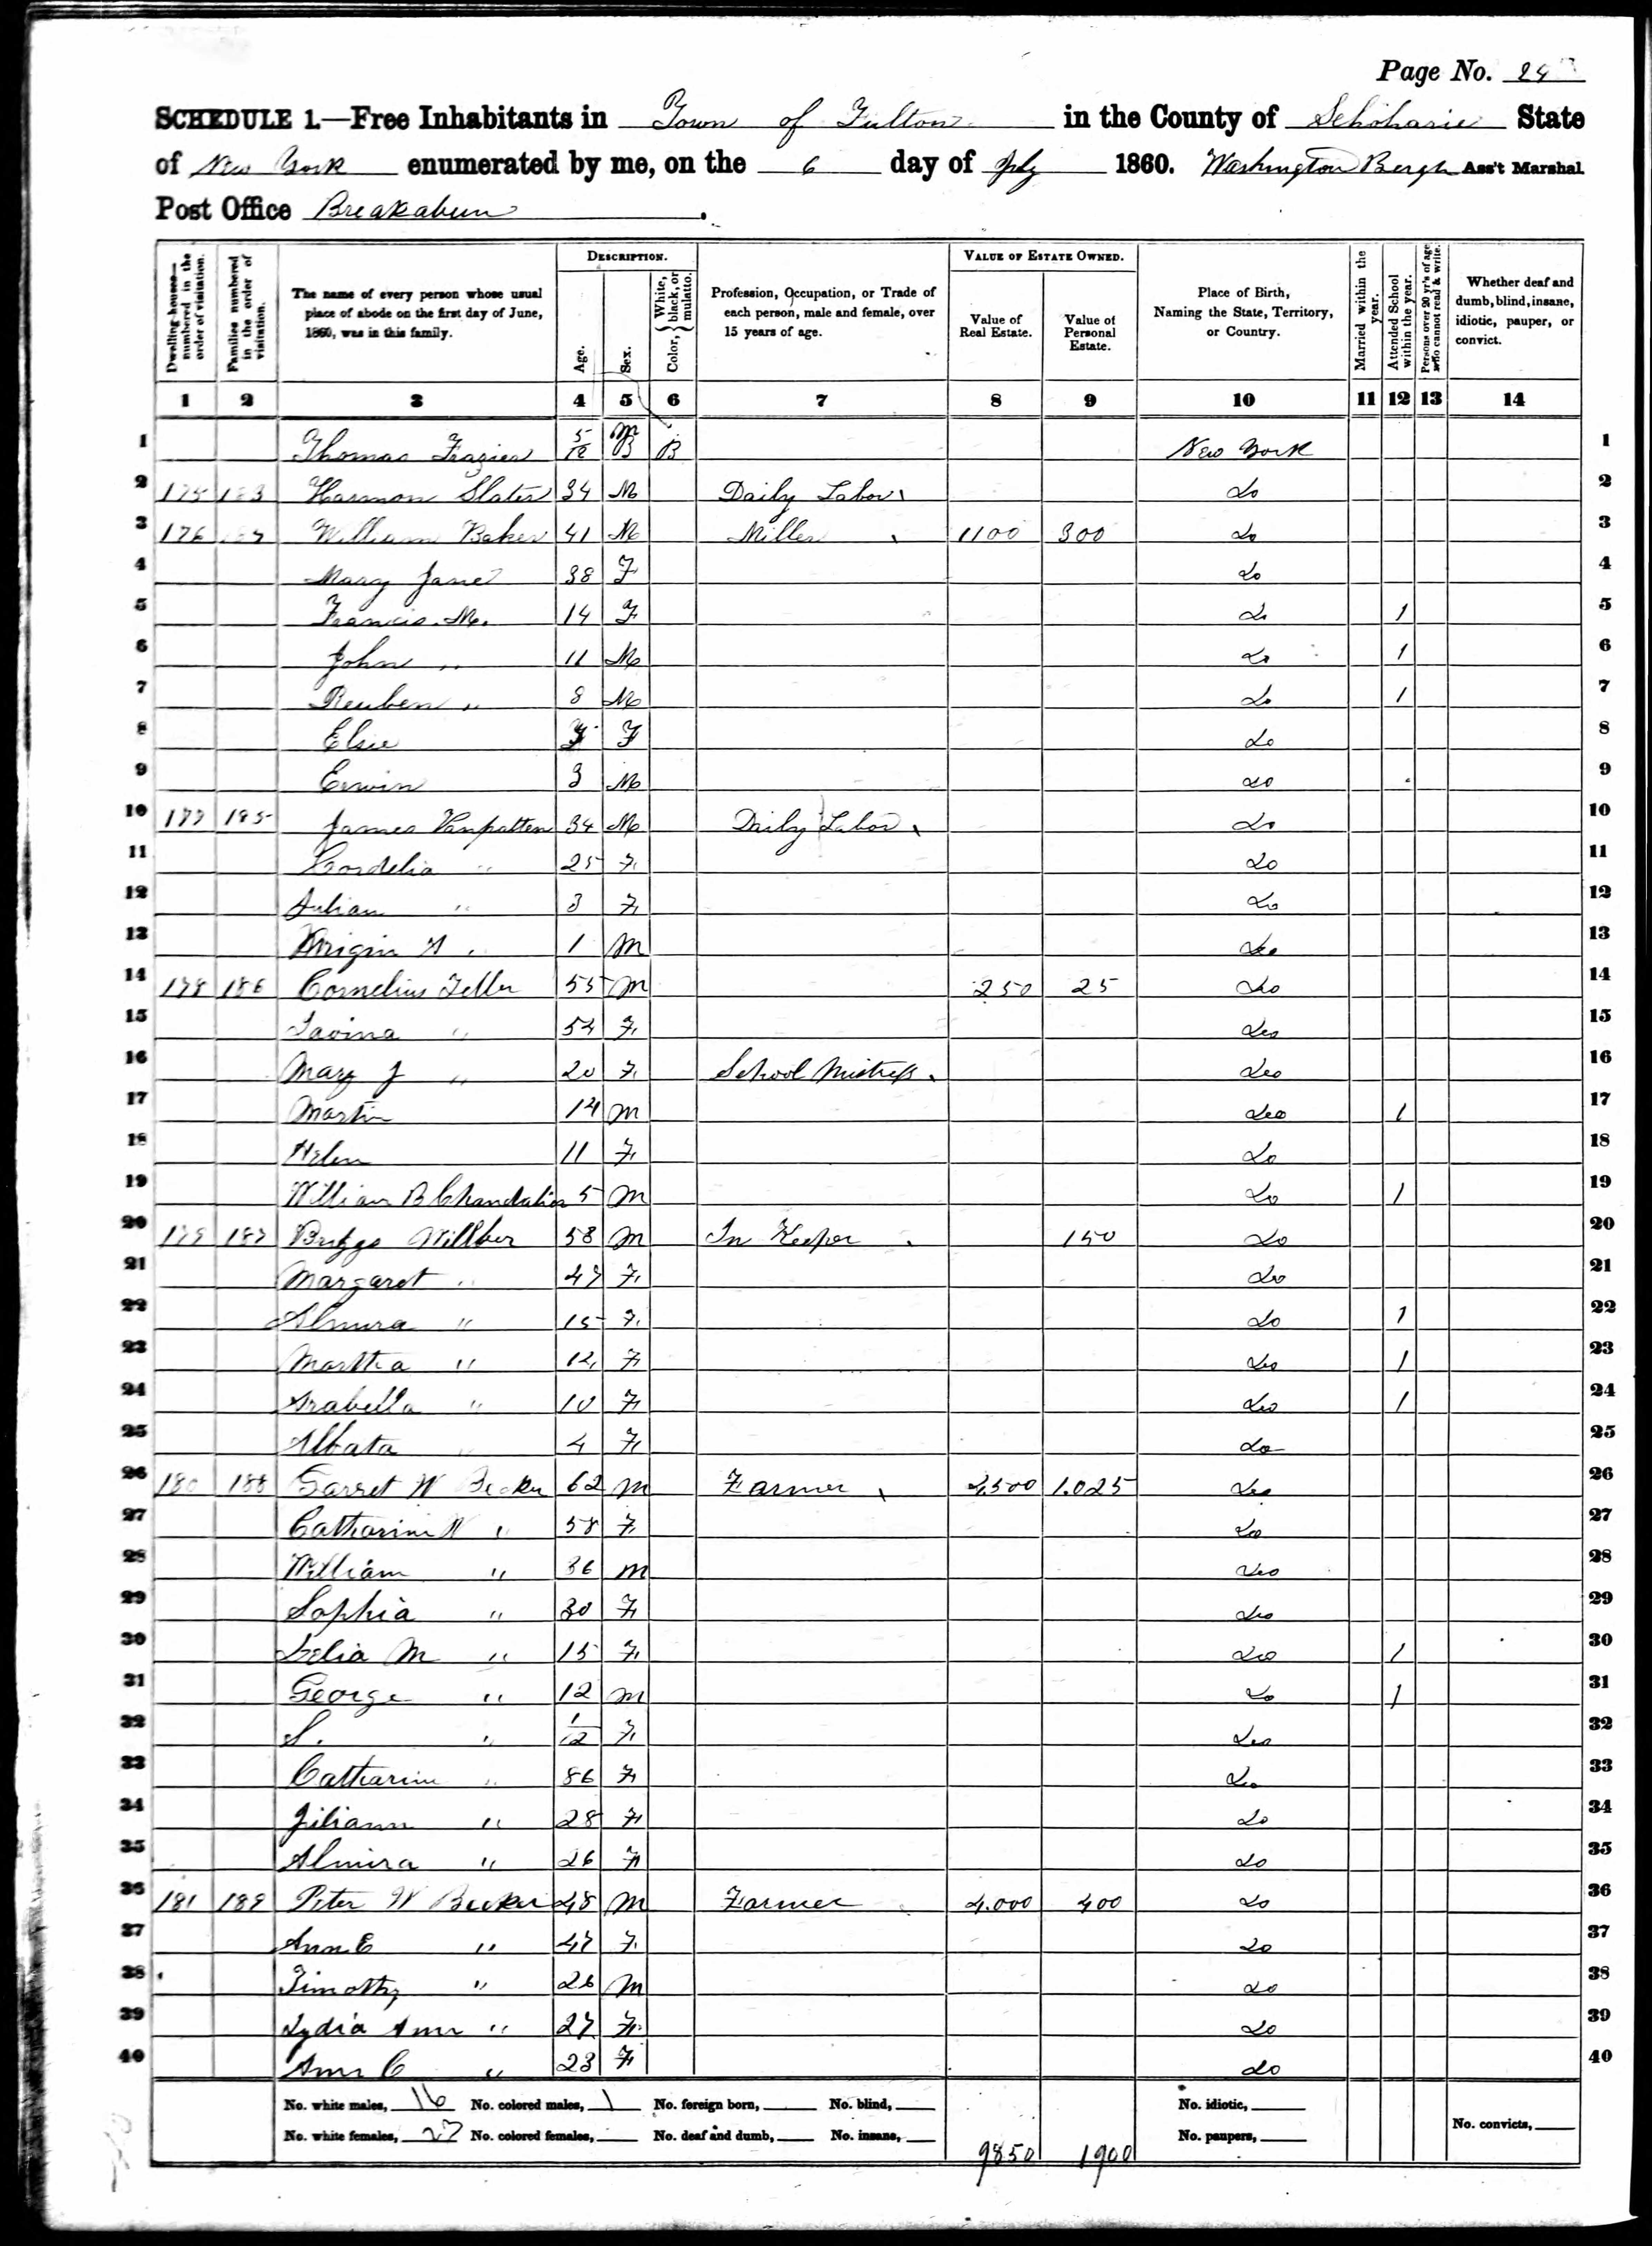 Page No. 24
SCHEDULE 1.—Free Inhabitants in Town of Fulton in the County of Schoharie State
of New York enumerated by me, on the 6 day of July 1860. Washington Bergh Ass't Marshal
Post Office Breakabeen.
Dwelling-houses—numbered in the order of visitation.
Families numbered in the order of visitation.
The name of every person whose usual place of abode on the first day of June, 1860, was in this family.
DESCRIPTION.
Age.
Sex.
Color, White, black, or mulatto.
Profession, Occupation, or Trade of each person, male and female, over 15 years of age.
VALUE OF ESTATE OWNED.
Value of Real Estate.
Value of Personal Estate.
Place of Birth, Naming the State, Territory, or Country.
Married within the year.
Attended School within the year.
Persons over 20 yr's of age who cannot read & write.
Whether deaf and dumb, blind, insane, idiotic, pauper, or convict.
1 2 3 4 5 6 7 8 9 10 11 12 13 14
1 Thomas Frazier 5/12 M B New York 1
2 175 183 Harmon Slater 34 M Daily Labor Do 2
3 176 William Baker 41 M Miller 1100 300 Do 3
4 Mary Jane 38 F Do 4
5 Francis M. 14 F Do 1 5
6 John " 11 M Do 1 6
7 Reuben " 8 M Do 1 7
8 Elsie F Do 8
9 Erwin 3 M Do 9
10 177 185 James Vanpatten 34 M Daily Labor Do 10
11 Cordelia " 25 F Do 11
12 Julian " 3 F Do 12
13 1 M Do 13
14 178 186 Cornelius Feller 55 M 250 25 Do 14
15 Lavina " 54 F Do 15
16 Mary J " 20 F School Mistress Do 16
17 Martin 14 M Do 1 17
18 Helen 11 F Do 18
19 William B 5 M Do 1 19
20 179 187 Briggs Willber 58 M In Keeper 150 Do 20
21 Margaret " 47 F Do 21
22 Almira " 15 F Do 1 22
23 Martha " 12 F Do 1 23
24 Arabella " 10 F Do 1 24
25 Albata " 4 F Do 25
26 180 188 Garret W Becker 62 M Farmer 4,500 1.025 Do 26
27 Catharine " 58 F Do 27
28 William " 36 M Do 28
29 Sophia " 30 F Do 29
30 Delia M " 15 F Do 1 30
31 George " 12 M Do 1 31
32 S. " 1/12 F Do 32
33 Catharine " 86 F Do 33
34 Juliann " 28 F Do 34
35 Almira " 26 F Do 35
36 181 189 Peter W Becker 48 M Farmer 4.000 400 Do 36
37 Ann E " 47 F Do 37
38 Timothy " 26 M Do 38
39 Lydia Ann " 27 F Do 39
40 Ann C " 23 F Do 40
No. white males, 16 No. colored males, 1 No. foreign born, No. blind, No. idiotic,
No. white females, 23 No. colored females, No. deaf and dumb, No. insane, No. paupers, No. convicts,
9850 1900